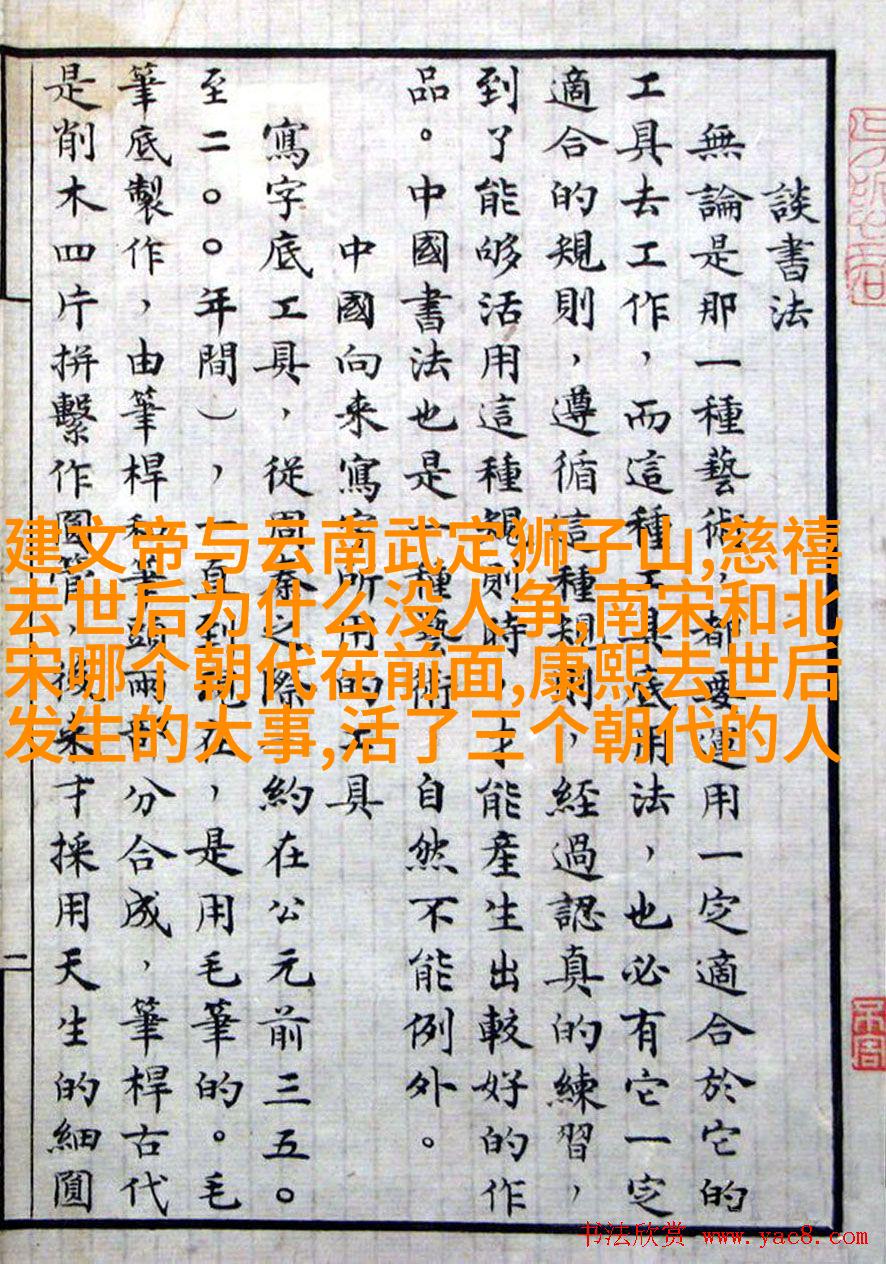 談書法
無論是那一種藝術，都要運用一定適合於它的
工具去工作，而這種工具底用法，也必有它一定
適合的規則，遵循這種規則，經過認真的練習，
到了能够活用這種規則時，才能產生出較好的作
品。中國書法也是一種藝術，自然不能例外。
中國向來寫字所用的工具
寫字底工具，從周秦之際（約在公元前三五〇
至二〇〇年間），一直到現在，是用毛筆的。毛
筆底製作，由筆桿和筆頭兩部分合成，筆桿古代
是削木四片拼繫作圓管，後來才採用天生的細圓
二
建文帝与云南武定狮子山,慈禧
去世后为什么没人争,南宋和北
宋哪个朝代在前面,康熙去世后
发生的大事,活了三个朝代的人
书法欣赏 www.yac8.com